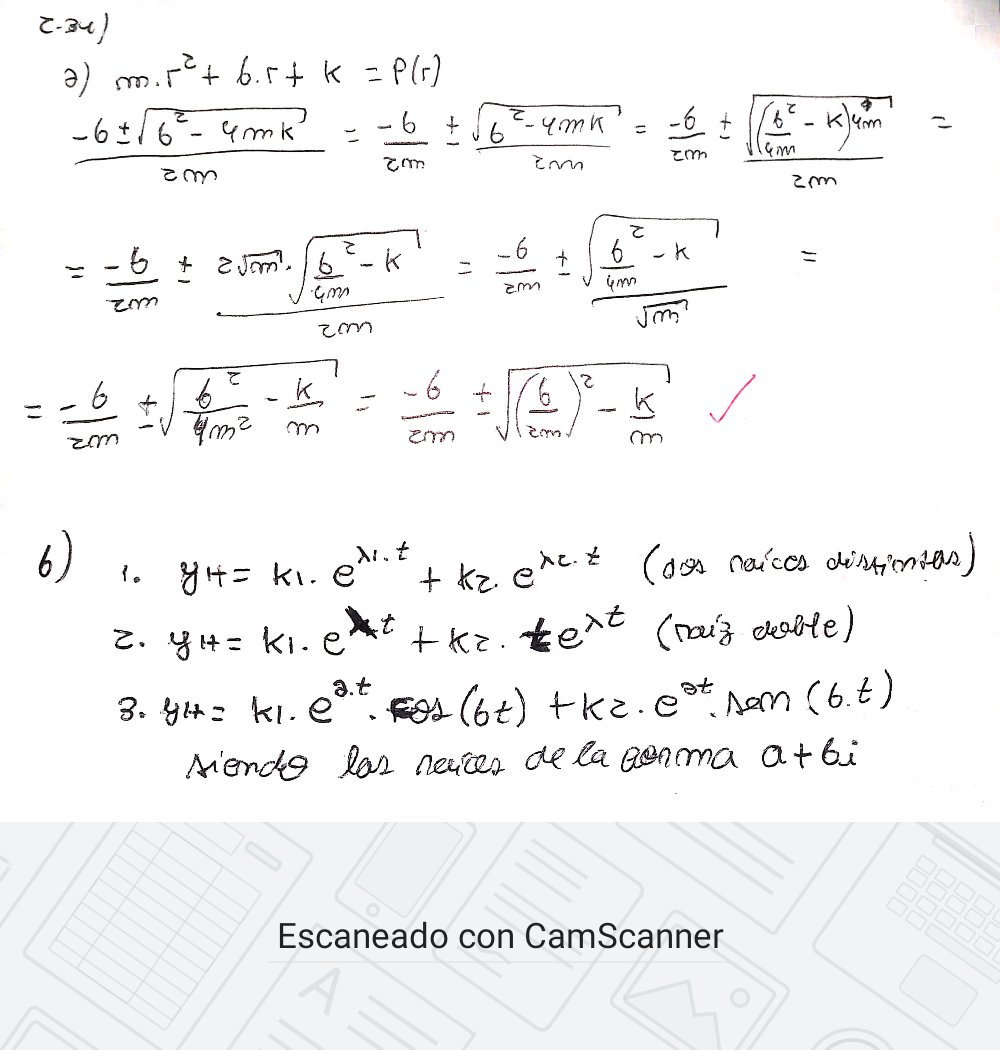 2.34)
a) m.r² + b.r + k = P(r)
(-b ± √(b² - 4mk)) / 2m = -b/2m ± √(b² - 4mk)/2m = -b/2m ± √((b²/4m - k)4m)/2m =
= -b/2m ± 2√m . √(b²/4m - k)/2m = -b/2m ± √(b²/4m - k)/√m =
= -b/2m ± √(b²/4m² - k/m) = -b/2m ± √((b/2m)² - k/m) ✓
b) 1. yH = k1. e^λ1.t + k2. e^λ2.t (dos raíces distintas)
2. yH = k1. e^λt + k2. te^λt (raíz doble)
3. yH = k1. e^a.t. cos(bt) + k2. e^at. sen(b.t)
siendo las raíces de la forma a+bi
Escaneado con CamScanner